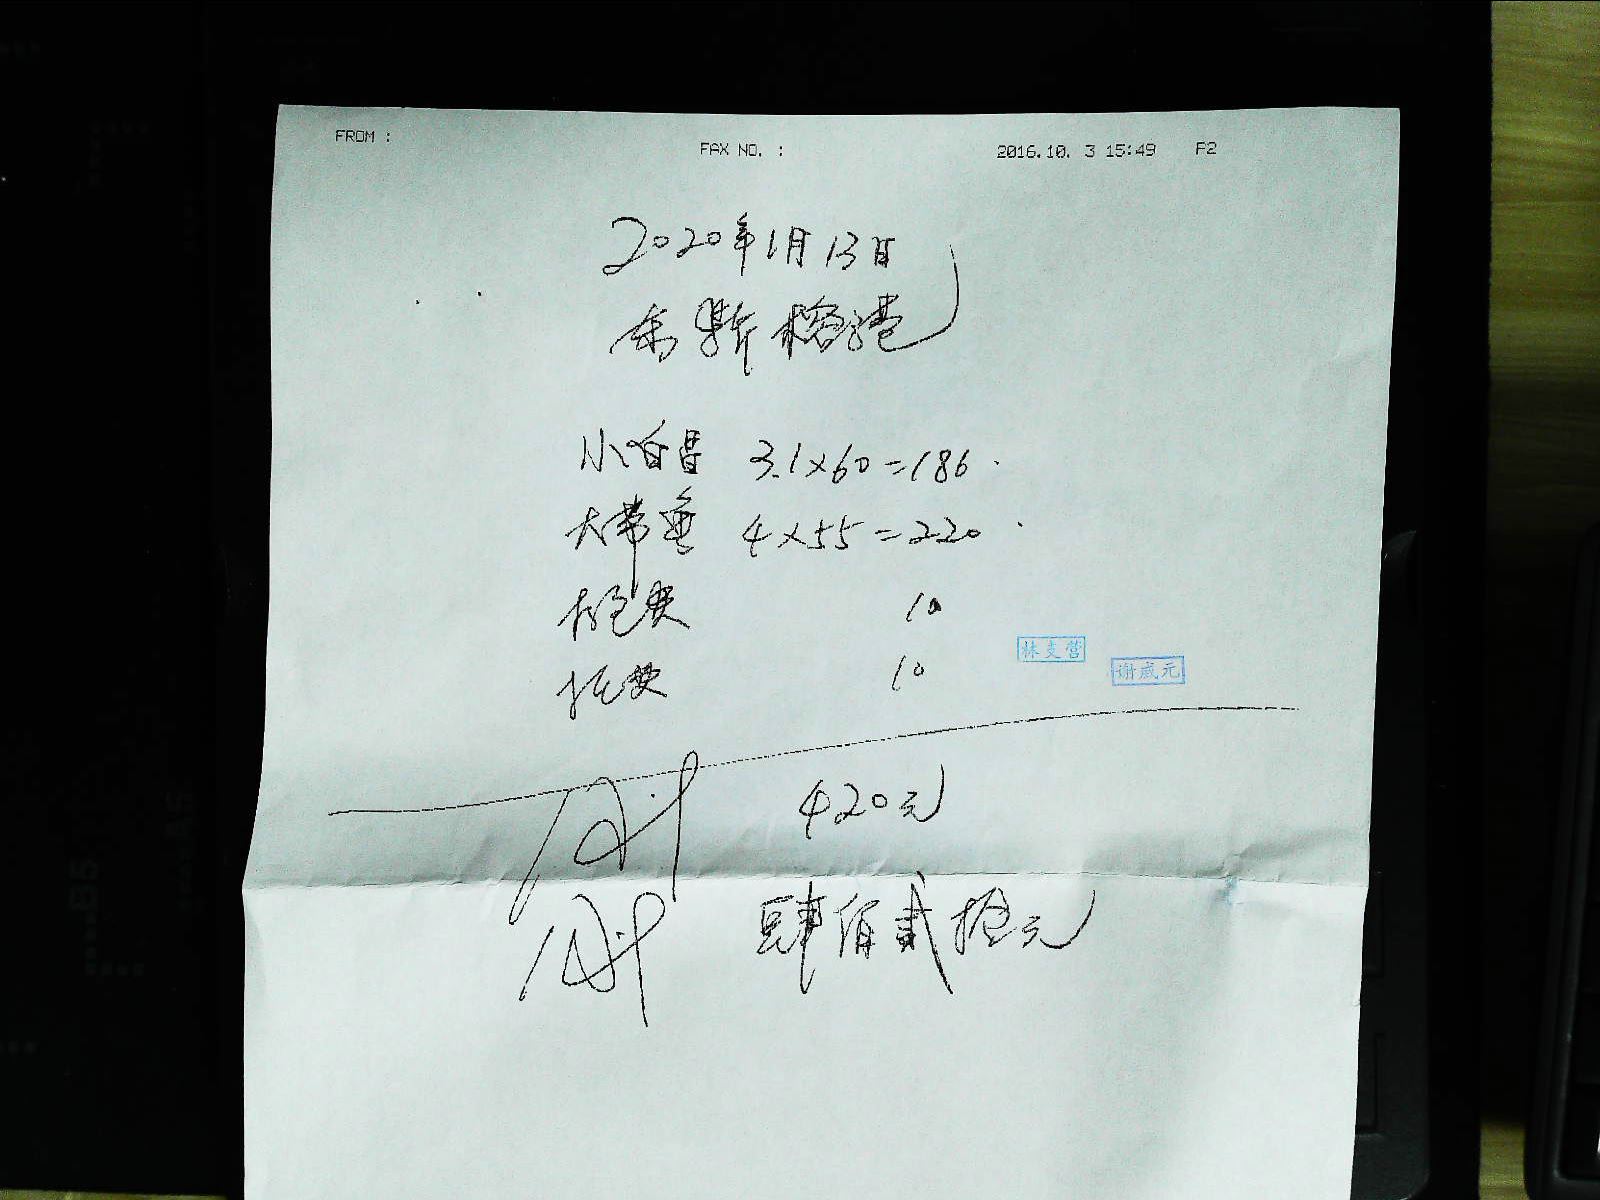 FROM :
FAX NO. :
2016.10. 3 15:49 P2
2020年1月13日
小白昌 3.1×60=186
大带重 4×55=220
包费 10
托费 10
林支营
谢威元
420元
肆佰贰拾元